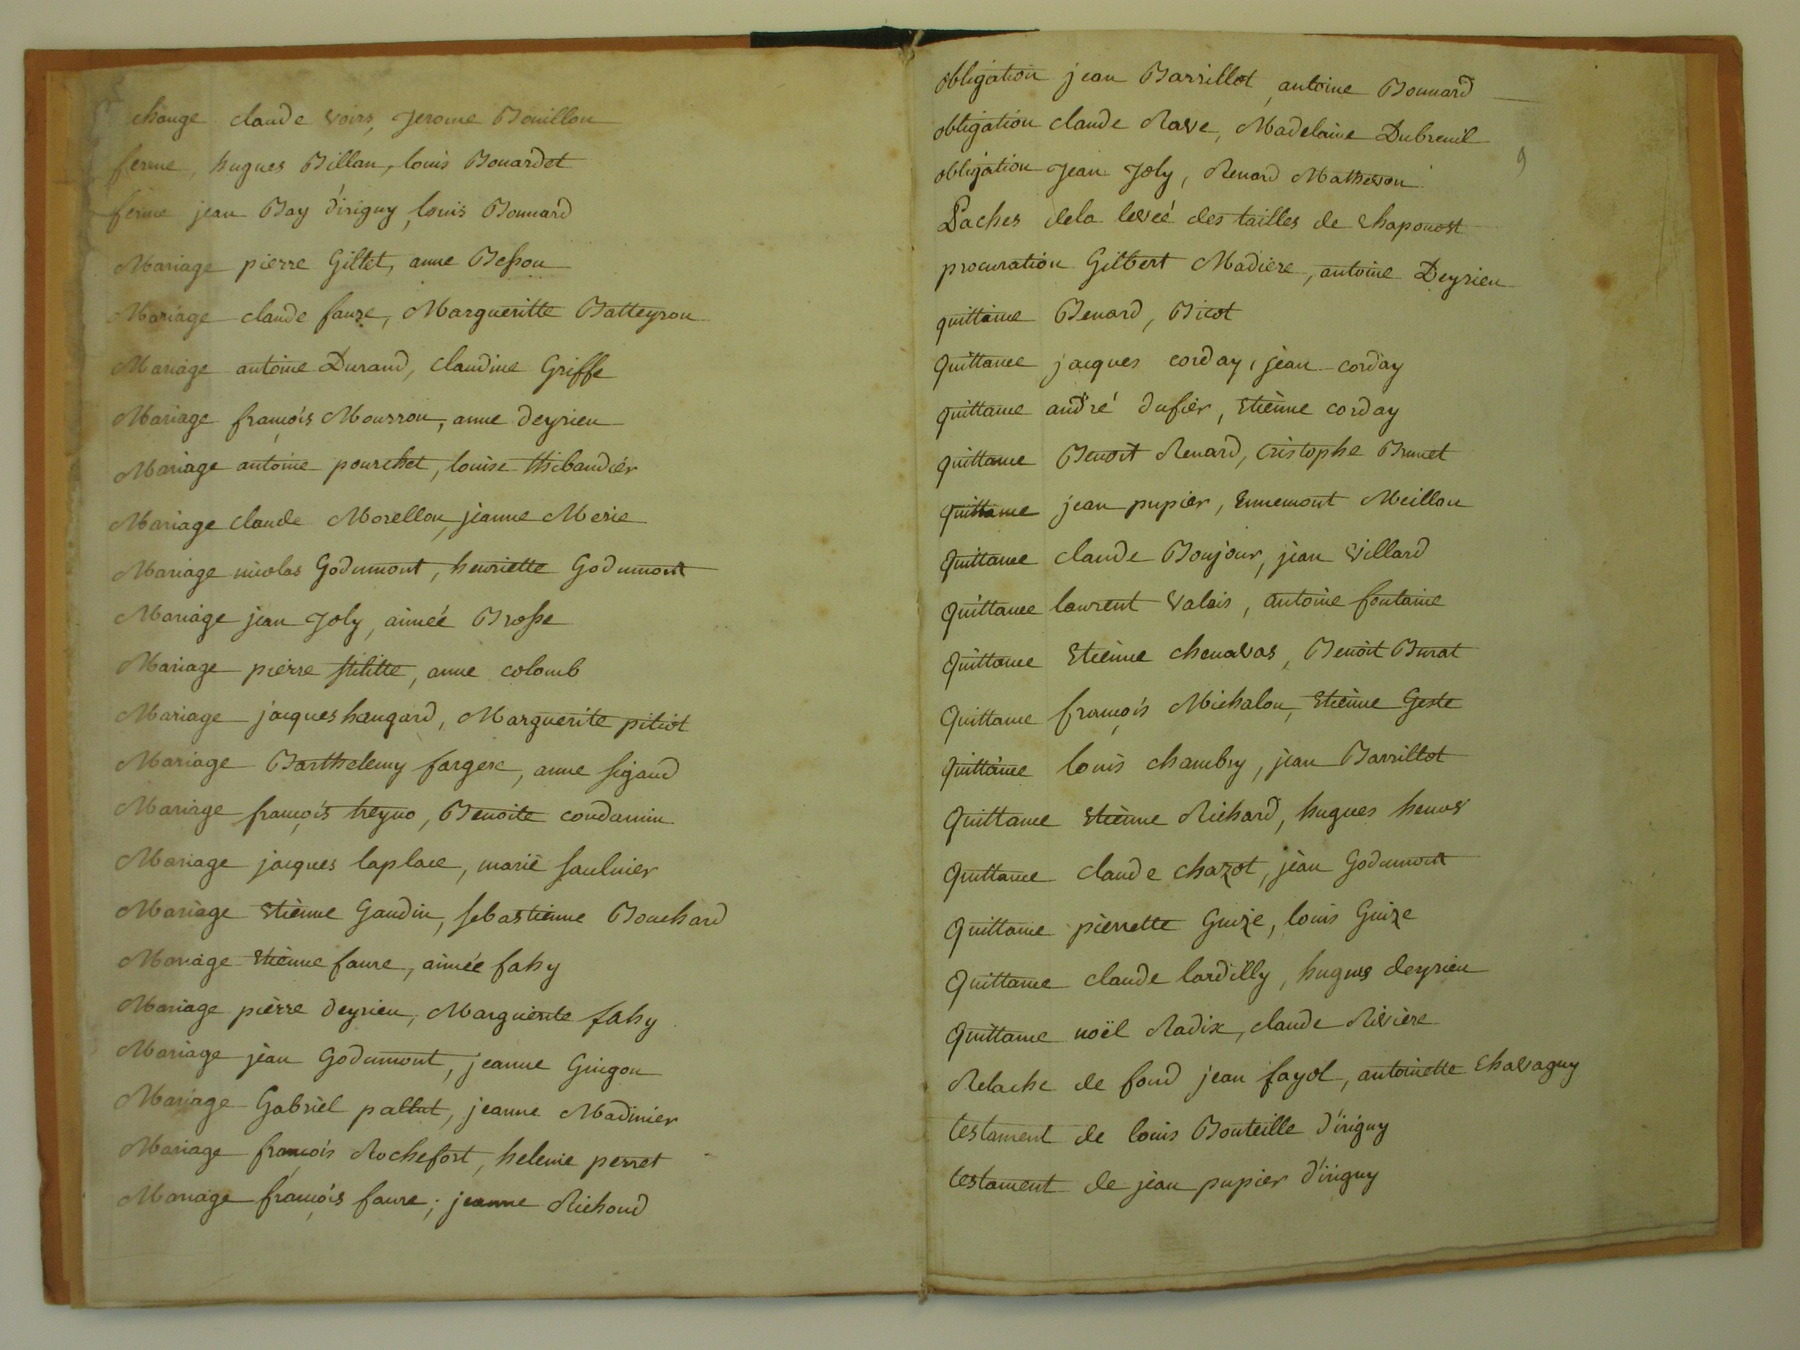 change claude voirs, Jerome Bouillon
ferme, hugues Billan, louis Bouardet
ferme jean Bay d'irigny, louis Bonnard
Mariage pierre Gillet, anne Besson
Mariage claude faure, Margueritte Batteyron
Mariage antoine Durand, claudine Griffe
Mariage françois Mourron, anne deyrieu
Mariage antoine pourchet, louise thibaudier
Mariage claude Morellon, jeanne Merie
Mariage nicolas Godumont, henriette Godumont
Mariage jean Joly, aimeé Brosse
Mariage pierre anne colomb
Mariage jacques haugard, Marguerite pitiot
Mariage Barthelemy fargere, anne sigaud
Mariage françois treyno, Benoite condamin
Mariage jacques laplace, marie saulnier
Mariage Etienne Gaudin, sebastienne Bouchard
Mariage Etienne faure, aimée fahy
Mariage pierre deyrieu, Marguerite fahy
Mariage jean Godumont, jeanne Guigon
Mariage Gabriel pallut, jeanne Madinier
Mariage françois Rochefort, helenie perret
Mariage françois faure, jeanne Richoud
obligation jean Barrillot, antoine Bonnard
obligation claude Rave, Madelaine Dubreuil
9
obligation Jean Joly, Renard Mathevon
Paches dela leveé des tailles de chaponost
procuration Gilbert Madiere, antoine Deyrieu
quittance Benard, Bicot
quittance jacques corday, jean corday
quittance andré dufier, Etienne corday
quittance Benoit Renard, Cristophe Brunet
quittance jean pupier, Ennemont Meillon
quittance claude Boujour, jean villard
quittance laurent valois, antoine fontaine
quittance Etienne chenavas, Benoit Burat
quittance françois Michalon, Etienne Geste
quittance louis chambry, jean Barrillot
quittance Etienne Richard, hugues
quittance claude chazot, jean Godumont
quittance pierrette Guize, louis Guize
quittance claude lardilly, hugues deyrieu
quittance noël Radix, claude Rivière
Relache de fond jean fayol, antoinette Chavagny
testament de louis Bouteille d'irigny
testament de jean pupier d'irigny